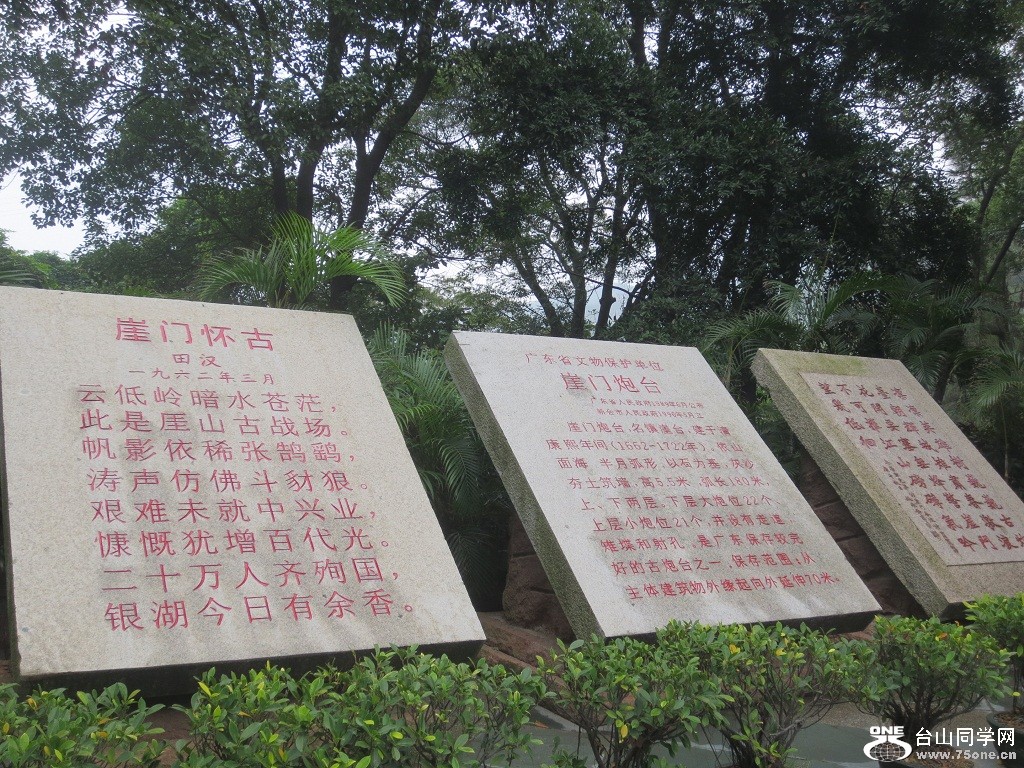 崖门怀古
田汉
一九六二年三月
云低岭暗水苍茫，
此是厓山古战场。
帆影依稀张鹄鹢，
涛声仿佛斗豺狼。
艰难未就中兴业，
慷慨犹增百代光。
二十万人齐殉国，
银湖今日有余香。
广东省文物保护单位
崖门炮台
广东省人民政府1989年6月公布
新会市人民政府1996年6月立
崖门炮台，名镇崖台，建于清
康熙年间（1662-1722年）。依山
面海，半月弧形，以石为基，灰沙
夯土筑墙，高5.5米，弧长180米，
上、下两层。下层大炮位22个，
上层小炮位21个，并设有走道，
雉堞和射孔，是广东保存较完
好的古炮台之一，保存范围：从
主体建筑物外缘起向外延伸70米。
ONE
台山同学网
www.75one.cn